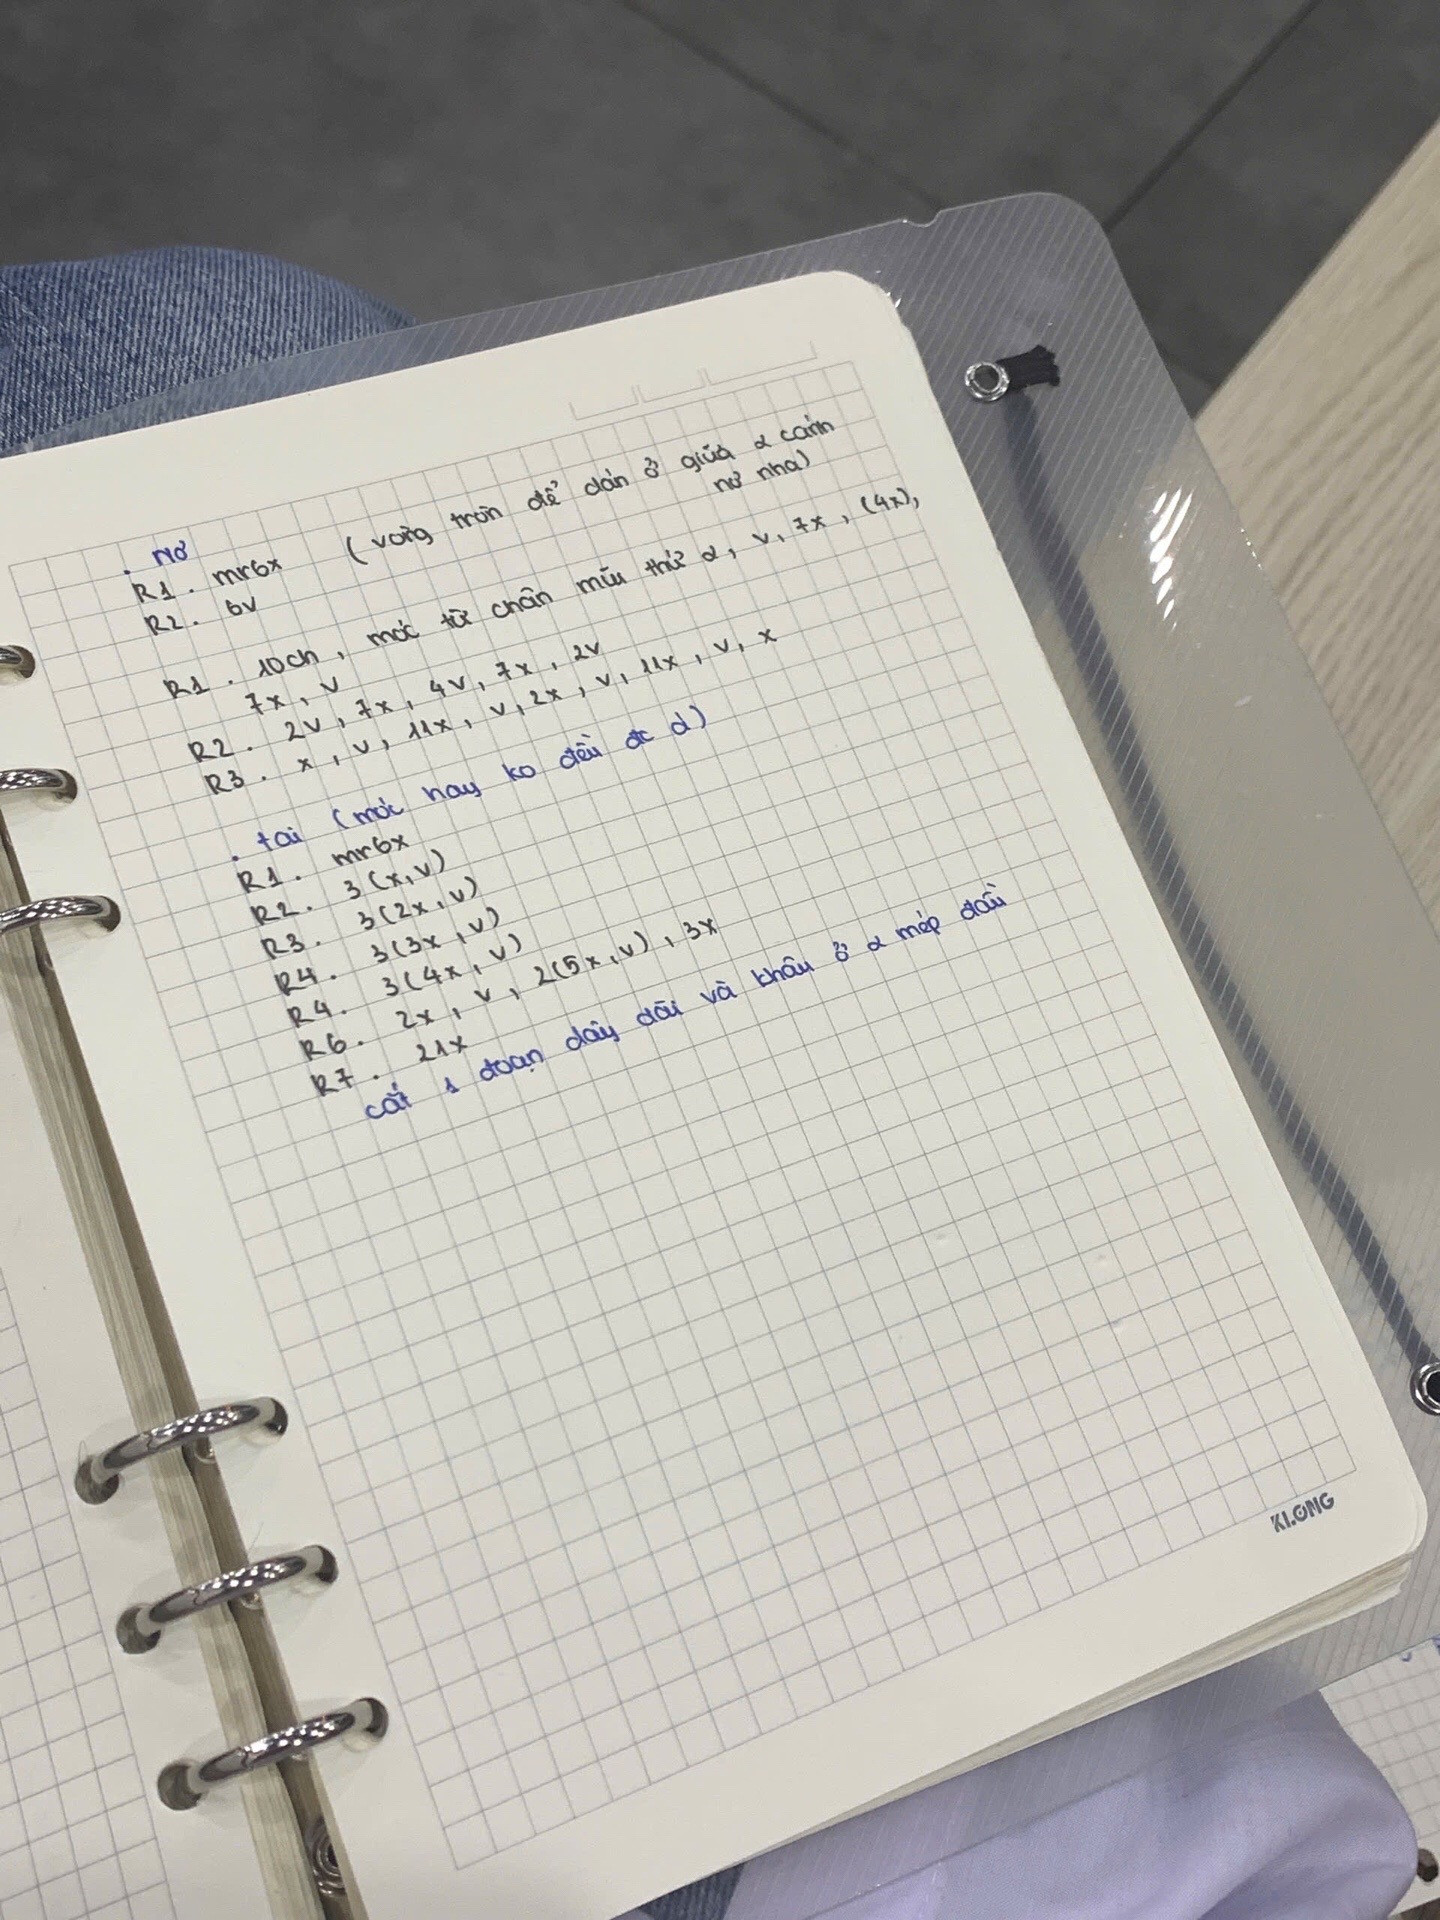 . nơ
R1. mr6x (vòng tròn để dán ở giữa 2 cánh
nơ nha)
R2. 6v
R1. 10ch, móc từ chân mũi thứ 2, v, 7x, (4x),
7x, v
R2. 2v, 7x, 4v, 7x, 2v
R3. x, v, 11x, v, 2x, v, 11x, v, x
. tai (móc hay ko đều đc d)
R1. mr6x
R2. 3(x,v)
R3. 3(2x,v)
R4. 3(3x,v)
R4. 3(4x,v)
R6. 2x, v, 2(5x,v), 3x
R7. 21x
cắt 1 đoạn dây dài và khâu ở 2 mép đầu
KLONG